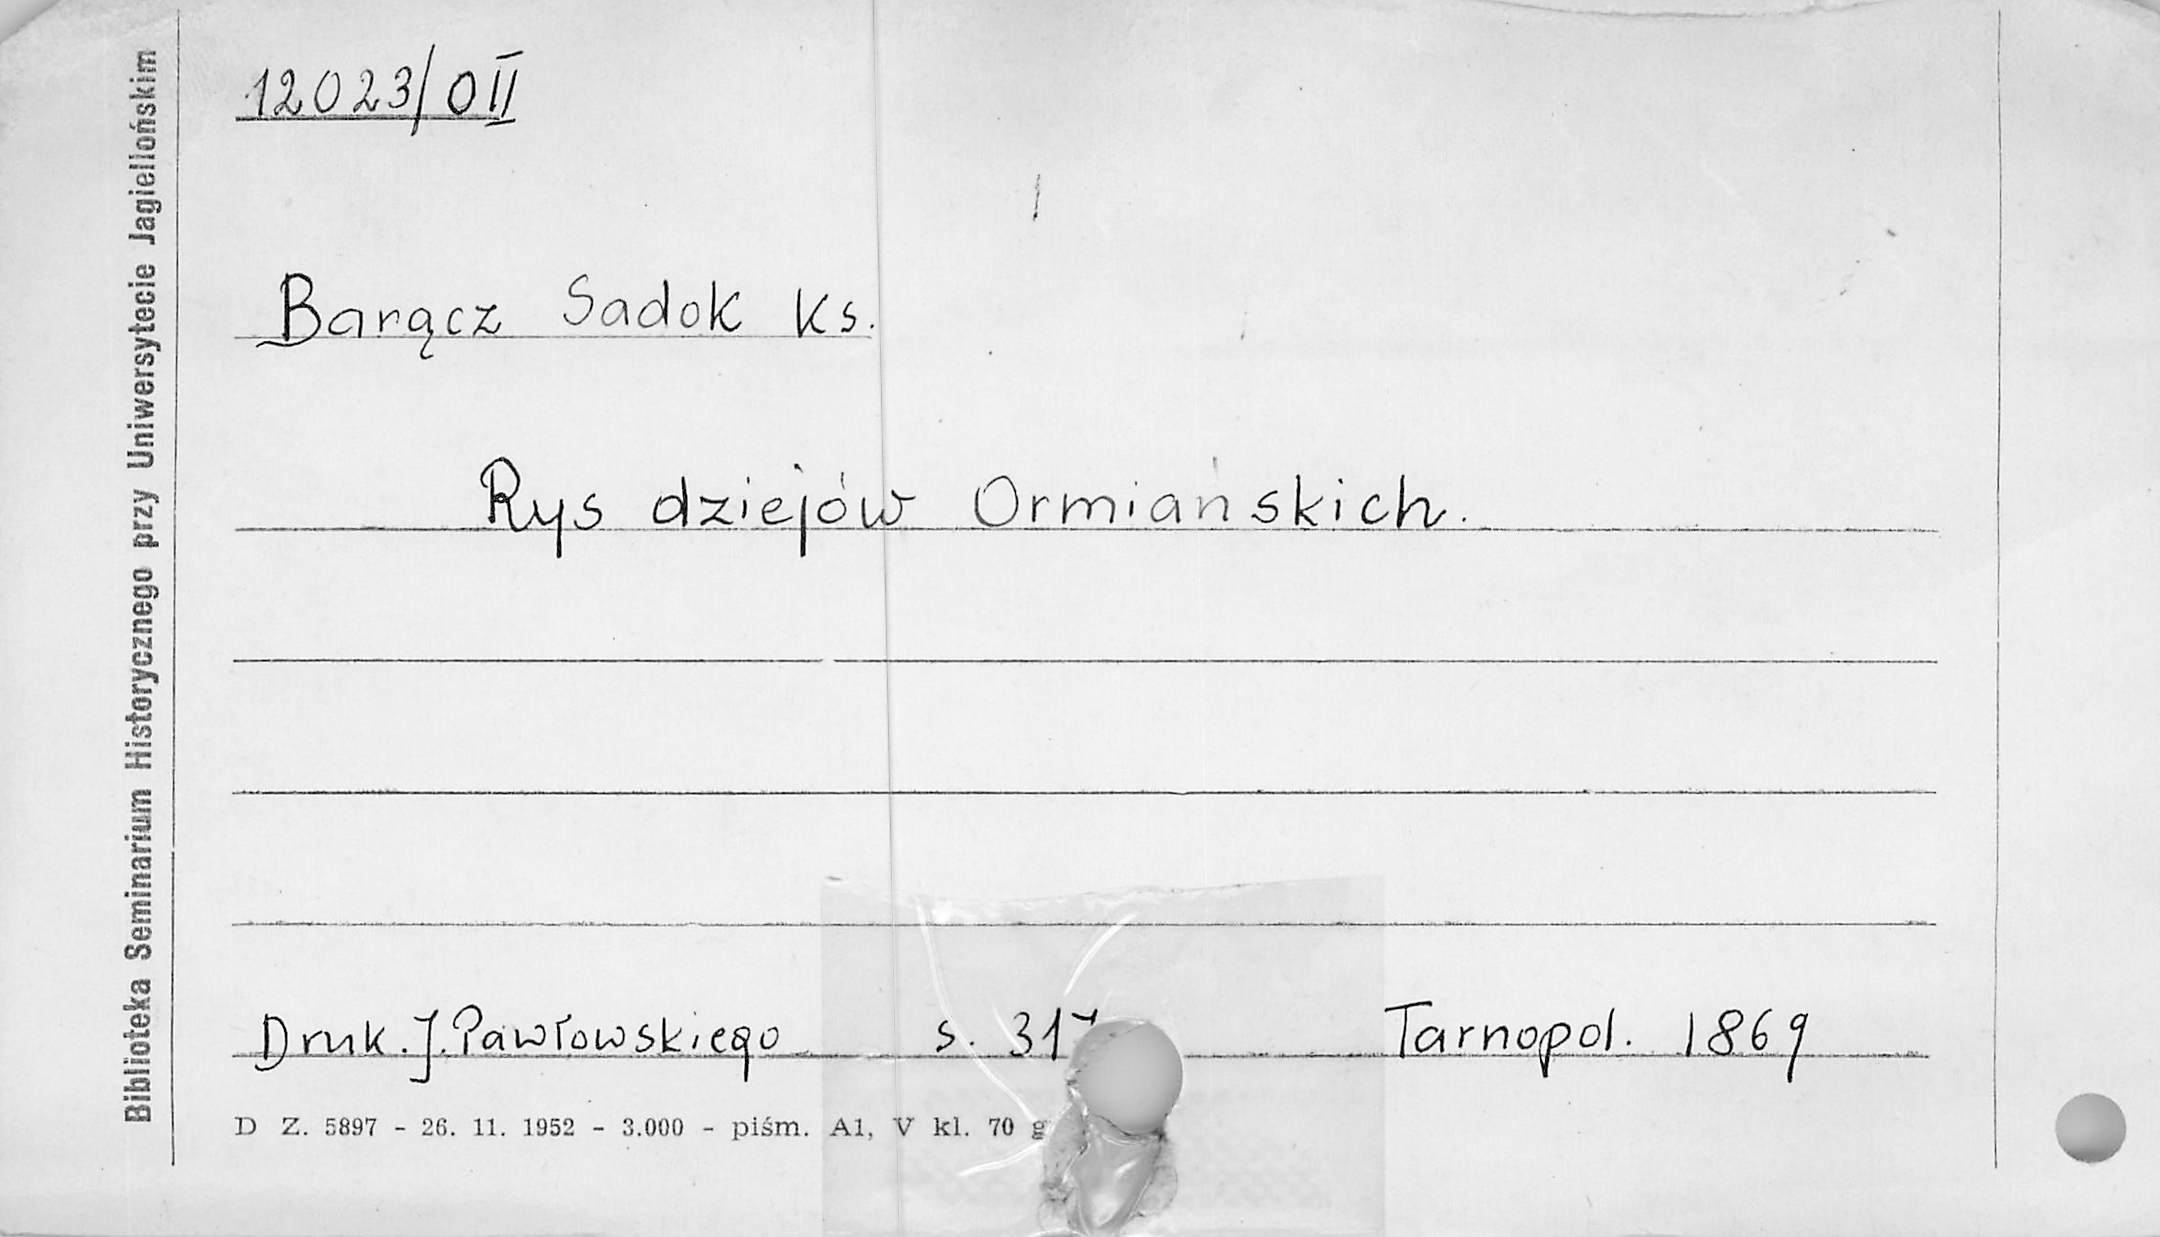 Biblioteka Seminarium Historycznego przy Uniwersytecie Jagiellońskim
12023/0II
Barącz Sadok Ks.
Rys dziejów Ormiańskich.
Druk. J. Pawłowskiego s. Tarnopol. 1869
D Z. 5897 - 26. 11. 1952 - 3.000 - piśm. A1, V kl. 70